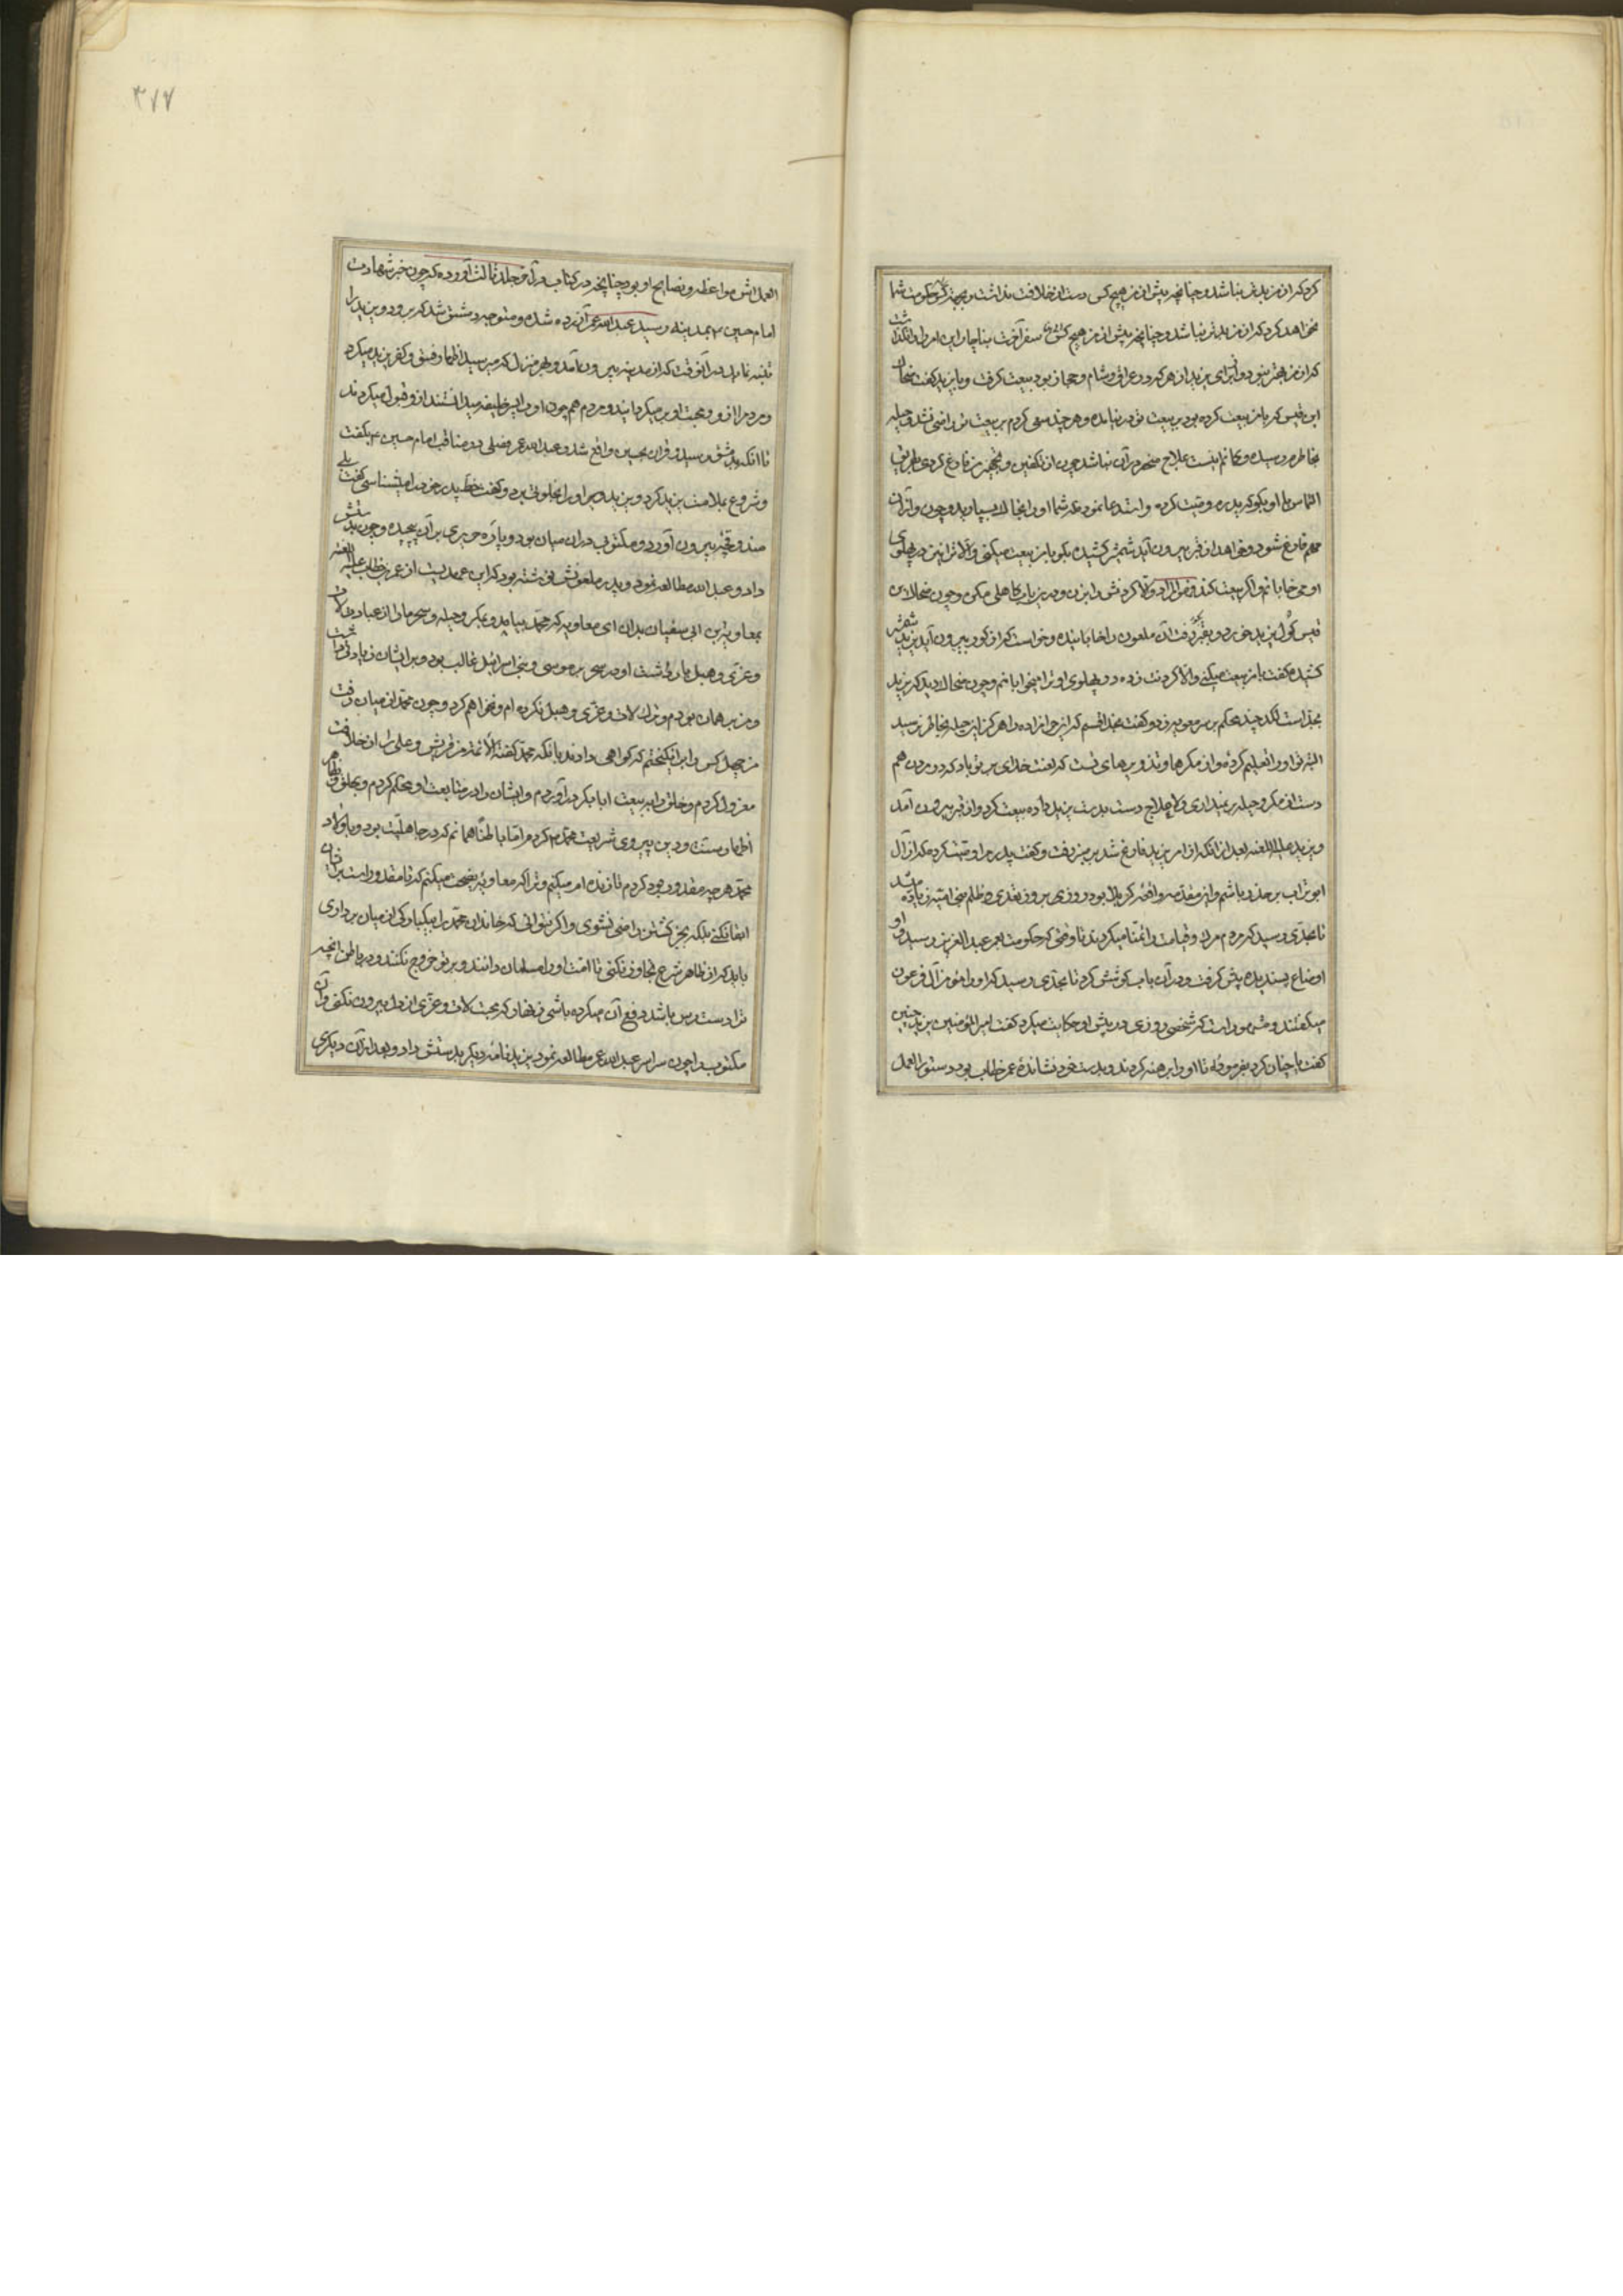 کرد که از من بدتر نباشد و چنانچه پیش از من هیچ کس دست از خلافت نداشت و بجهت حکومت شما
نخواهد کرد که از من بدتر نباشد و چنانچه پیش از من هیچ کس سفر آخرت بناچار این امر را وا گذاشت
که از من بهتر نبود و برای یزید از هر که در عراق و شام و حجاز بود بیعت گرفت و با یزید گفت ضحاک
ابن قیس که با من بیعت کرده بود بر بیعت تو در نیامده و هر چند سعی کردم بر بیعت تو راضی نشد و حیله
بخاطرم رسیده و کمانم اینست علاج منحصر در آن نباشد چون از تکفین و تجهیز من فارغ کردی بطریق
التماس با او بگو که پدرم وصیت کرده و استدعا نموده که شما او را بخاک بسپارید و چون از آن
مهم فارغ شود و خواهد از قبر بیرون آید شمشیر کشیده بگو با من بیعت میکنی و الا ترا نیز در پهلوی
او می خوابانم و اگر بیعت کند فهو المراد و الا گردنش را بزن و در این باب کاهلی مکن و چون ضحاک ابن
قیس گول یزید خورد و بقبر رفت آن ملعون را خوابانیده و خواست که از گور بیرون آید یزید شمشیر
کشیده گفت با من بیعت میکنی و الا گردنت زده در پهلوی او ترا میخوابانم و چون ضحاک دید که یزید
بجد است لگد چند محکم بر سر معویه زد و گفت بخدا قسم که این حرامزاده را هرگز این حیله بخاطر نرسید
البته تو او را تعلیم کرده و از مکرها و تزویرهای تست که لعنت خدای بر تو باد که در مردن هم
دست از مکر و حیله بر نمیداری و لاعلاج دست بدست یزید داده بیعت کرد و از قبر بیرون آمد
و یزید علیه اللعنه بعد از انکه از امر یزید فارغ شد بر منبر رفت و گفت پدرم مرا وصیت کرده که از آل
ابو تراب بر حذر باشم و این مقدمه واقعه کربلا بود روزی بروز تعدی و ظلم بنی امیه زیاده میشد
تا بحدی رسید که مردم مرگ و قیامت را تمنا میکردند تا وقتی که حکومت بعمر عبد العزیز رسید و او
اوضاع پسندیده پیش گرفت و در آن باب کوشش کرد تا بحدی رسید که او را مؤمن آل فرعون
میگفتند و مشهور است که شخصی روزی در پیش او حکایت میکرد گفت امیر المؤمنین یزید چنین
گفت یا چنان کرد بفرمود که تا او را برهنه کردند و بدست خود نشانده عمر خطاب بود و دستور العمل
۳۷۷
العملش مواعظ و نصایح او بود چنانچه در کتاب در آن جلد ثالث آورده که چون خبر شهادت
امام حسین ۴ بمدینه رسید عبد الله عمر آزرده شده و متوجه دمشق شد که برود و یزید را
تنبیه نماید در آنوقت که از مدینه بیرون آمد و بهر منزل که میرسید اظهار فسق و کفر یزید میکرد
و مردم را از و و محبت او بر میگردانید و مردم هم چون او را پسر خلیفه میدانستند از و قبول میکردند
تا انکه بدمشق رسید و قران نحسین واقع شد و عبد الله عمر فصلی در مناقب امام حسین ۴ بگفت
و شروع بملامت یزید کرد و یزید پلید او را بخلوتی برد و گفت خط پدر خود را میشناسی گفت بلی
صندوقچه بیرون آورد و مکتوبی در ان میان بود و پاره حریری بر آن پیچیده و چون بدستش
داد و عبد الله مطالعه نمود و پدر ملعونش نوشته بود که این عهدیست از عمر بن خطاب علیه اللعنه
بمعاویه بن ابی سفیان بدان ای معاویه که محمد بیامد و بمکر و حیله و سحر ما را از عبادت لات
و عزی و هبل باز داشت او در سحر بر موسی و بنی اسرائیل غالب بود و بر ایشان زیادتی داشت
و من بر همان بودم و ترک لات و عزی و هبل نکرده ام و نخواهم کرد و چون محمد از میان رفت
من چهل کس را بر انگیختم که گواهی دادند بانکه محمد گفته الائمة من قریش و علی را از خلافت
معزول کردم و خلق را به بیعت ابا بکر در آوردم و ایشان را در متابعت او محکم کردم و بخلق در ظاهر
اظهار سنت و دین پیروی شریعت محمد ۴ کردم و اما باطنا همانم که در جاهلیت بود و با اولاد
محمد هر چه مقدور بود کردم تا زنده امر میکنم و ترا که معاویه نصیحت میکنم که تا مقدور است بر آن
ابقا نکنی بلکه بجز کشتن راضی نشوی و اگر بتوانی که خاندان محمد را بیکبارکی از میان برداری
باید که از ظاهر شرع تجاوز نکنی تا امت او را مسلمان دانند و بر تو خروج نکنند و در باطن انچه
ترا دسترس باشد در دفع آن میکرده باشی زنهار که محبت لات و عزی از دل بیرون نکنی و آن
مکتوب را چون سراسر عبد الله عمر مطالعه نمود یزید نامه دیگر بدستش داد و بعد از آن دیگری